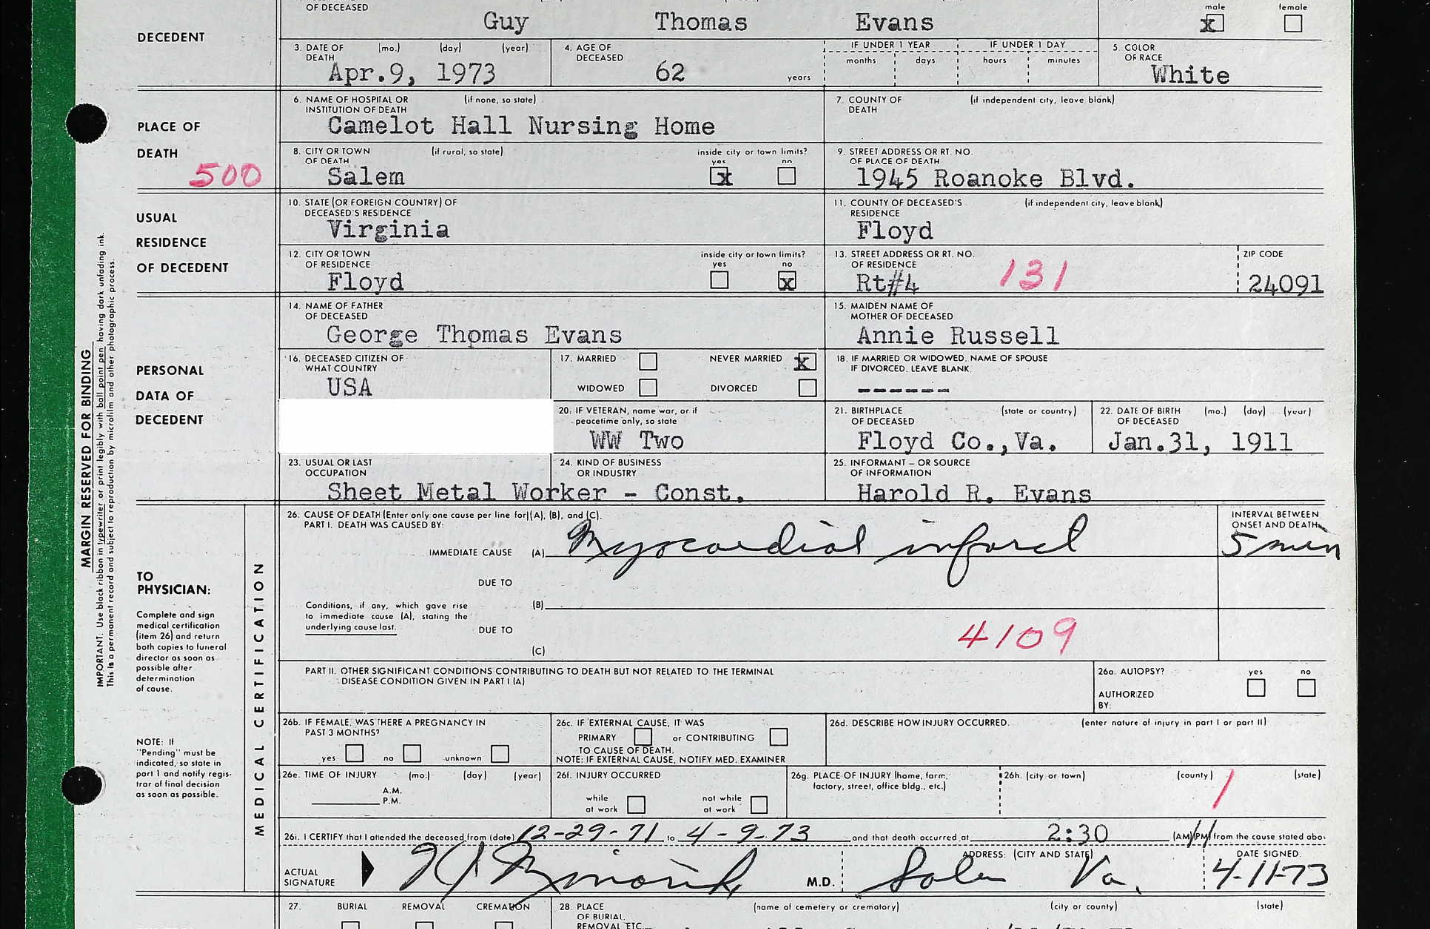 OF DECEASED Guy Thomas Evans male x female
DECEDENT
3. DATE OF DEATH (mo.) (day) (year) Apr.9, 1973
4. AGE OF DECEASED 62 years
IF UNDER 1 YEAR months days IF UNDER 1 DAY hours minutes
5. COLOR OF RACE White
PLACE OF DEATH
500
6. NAME OF HOSPITAL OR INSTITUTION OF DEATH (if none, so state)
Camelot Hall Nursing Home
7. COUNTY OF DEATH (if independent city, leave blank)
8. CITY OR TOWN OF DEATH (if rural, so state) inside city or town limits? yes x no
Salem
9. STREET ADDRESS OR RT. NO. OF PLACE OF DEATH
1945 Roanoke Blvd.
USUAL RESIDENCE OF DECEDENT
10. STATE (OR FOREIGN COUNTRY) OF DECEASED'S RESIDENCE
Virginia
11. COUNTY OF DECEASED'S RESIDENCE (if independent city, leave blank)
Floyd
12. CITY OR TOWN OF RESIDENCE inside city or town limits? yes no x
Floyd
13. STREET ADDRESS OR RT. NO. OF RESIDENCE
Rt#4 131
ZIP CODE
24091
14. NAME OF FATHER OF DECEASED
George Thomas Evans
15. MAIDEN NAME OF MOTHER OF DECEASED
Annie Russell
PERSONAL DATA OF DECEDENT
16. DECEASED CITIZEN OF WHAT COUNTRY
USA
17. MARRIED NEVER MARRIED x
WIDOWED DIVORCED
18. IF MARRIED OR WIDOWED, NAME OF SPOUSE
IF DIVORCED, LEAVE BLANK.
------
20. IF VETERAN, name war, or if peacetime only, so state
WW Two
21. BIRTHPLACE OF DECEASED (state or country)
Floyd Co.,Va.
22. DATE OF BIRTH OF DECEASED (mo.) (day) (year)
Jan.31, 1911
23. USUAL OR LAST OCCUPATION 24. KIND OF BUSINESS OR INDUSTRY
Sheet Metal Worker - Const.
25. INFORMANT – OR SOURCE OF INFORMATION
Harold R. Evans
MARGIN RESERVED FOR BINDING
IMPORTANT. Use black ribbon in typewriter or print legibly with ball point pen having dark unfading ink.
This is a permanent record and subject to reproduction by microfilm and other photographic process.
TO PHYSICIAN:
Complete and sign
medical certification
(item 26) and return
both copies to funeral
director as soon as
possible after
determination
of cause.
NOTE: If
"Pending" must be
indicated, so state in
part 1 and notify regis-
trar of final decision
as soon as possible.
MEDICAL CERTIFICATION
26. CAUSE OF DEATH (Enter only one cause per line for (A), (B), and (C).
PART I. DEATH WAS CAUSED BY:
INTERVAL BETWEEN ONSET AND DEATH
IMMEDIATE CAUSE (A) Myocardial infarct 5 min
DUE TO
(B)
Conditions, if any, which gave rise
to immediate cause (A), stating the
underlying cause last.
DUE TO
(C)
4109
PART II. OTHER SIGNIFICANT CONDITIONS CONTRIBUTING TO DEATH BUT NOT RELATED TO THE TERMINAL
DISEASE CONDITION GIVEN IN PART I (A)
26a. AUTOPSY? yes no
AUTHORIZED BY:
26b. IF FEMALE, WAS THERE A PREGNANCY IN PAST 3 MONTHS?
yes no unknown
26c. IF EXTERNAL CAUSE, IT WAS
PRIMARY or CONTRIBUTING
TO CAUSE OF DEATH.
NOTE: IF EXTERNAL CAUSE, NOTIFY MED. EXAMINER
26d. DESCRIBE HOW INJURY OCCURRED. (enter nature of injury in part I or part II)
26e. TIME OF INJURY (mo.) (day) (year)
A.M.
P.M.
26f. INJURY OCCURRED
while at work not while at work
26g. PLACE OF INJURY (home, farm, factory, street, office bldg., etc.)
26h. (city or town) (county) (state)
26i. I CERTIFY that I attended the deceased from (date) 12-29-71 to 4-9-73 and that death occurred at 2:30 (AM)(PM) from the cause stated abo
ACTUAL SIGNATURE M.D.
ADDRESS: (CITY AND STATE)
Salem Va.
DATE SIGNED:
4-11-73
27. BURIAL REMOVAL CREMATION
28. PLACE OF BURIAL, REMOVAL, ETC. (name of cemetery or crematory) (city or county) (state)